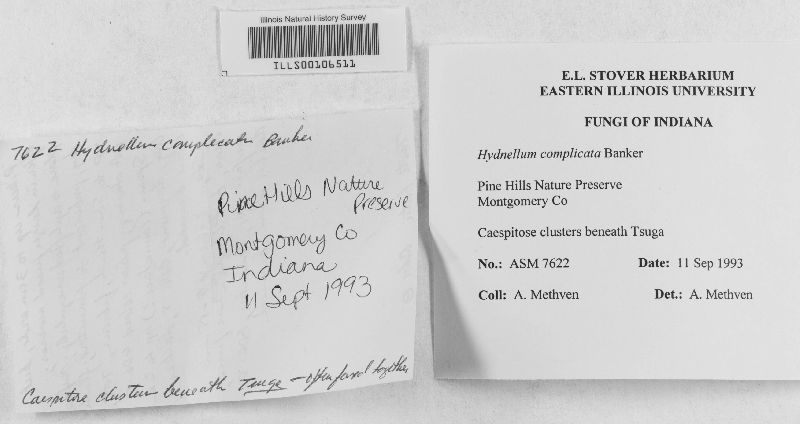 Illinois Natural History Survey
ILLS00106511
7622 Hydnellum complicata Banker
Pine Hills Nature
Preserve
Montgomery Co
Indiana
11 Sept 1993
Caespitose clusters beneath Tsuga - often fused together
E.L. STOVER HERBARIUM
EASTERN ILLINOIS UNIVERSITY
FUNGI OF INDIANA
Hydnellum complicata Banker
Pine Hills Nature Preserve
Montgomery Co
Caespitose clusters beneath Tsuga
No.: ASM 7622 Date: 11 Sep 1993
Coll: A. Methven Det.: A. Methven